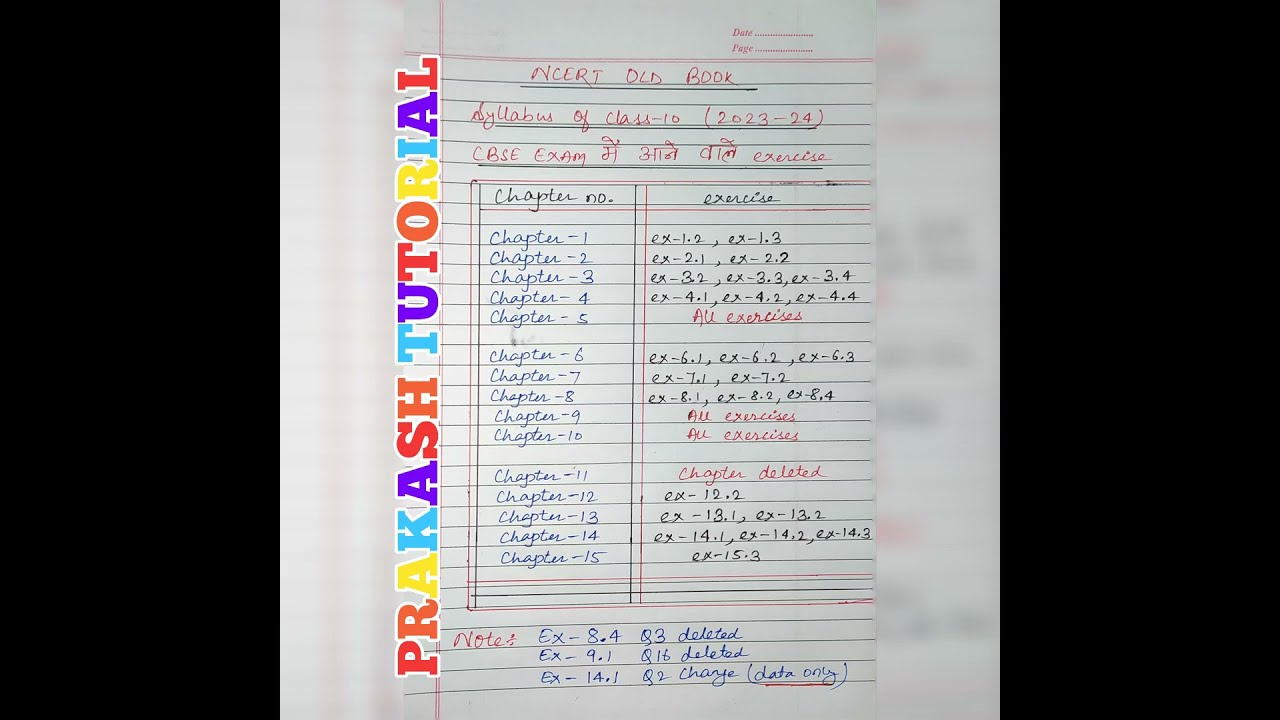 PRAKASH TUTORIAL
Date ......................
Page ......................
NCERT OLD BOOK
Syllabus of class-10 (2023-24)
CBSE EXAM में आने वाले exercise
Chapter no. exercise
Chapter-1 ex-1.2, ex-1.3
Chapter-2 ex-2.1, ex-2.2
Chapter-3 ex-3.2, ex-3.3, ex-3.4
Chapter-4 ex-4.1, ex-4.2, ex-4.4
Chapter-5 All exercises
Chapter-6 ex-6.1, ex-6.2, ex-6.3
Chapter-7 ex-7.1, ex-7.2
Chapter-8 ex-8.1, ex-8.2, ex-8.4
Chapter-9 All exercises
Chapter-10 All exercises
Chapter-11 Chapter deleted
Chapter-12 ex-12.2
Chapter-13 ex-13.1, ex-13.2
Chapter-14 ex-14.1, ex-14.2, ex-14.3
Chapter-15 ex-15.3
Note: Ex-8.4 Q3 deleted
Ex-9.1 Q16 deleted
Ex-14.1 Q2 Change (data only)